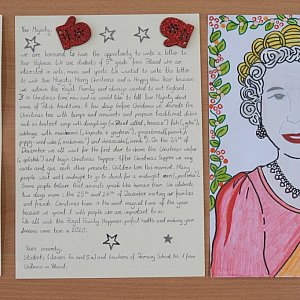 Your Majesty,
we are honoured to have the opportunity to write a letter to
Your Highness. We are students of 5th grade from Poland who are
interested in arts, music and sports. We wanted to write this letter
to wish Your Majesty Merry Christmas and a Happy New Year because
we admire the Royal Family and always wanted to visit England.
It is Christmas time now and we would like to tell Your Majesty about
some of Polish traditions. It is time before Christmas we decorate the
Christmas tree with lamps and ornaments and prepare traditional dishes
such as beetroot soup with dumplings (in Poland called
cabbage with mushrooms
poppy seed cake ( ), and cheesecake
December we all wait for the first star to leave the Christmas wafer
and begin Christmas Supper. After Christmas Supper we sing
carols and give each other presents. Children love this moment. Many
people wait until midnight to go to church for a midnight
Some people believe that animals speak like human then. We celebrate
two days more - the 25th and 26th of December visiting our families
and friends. Christmas time is the most magical time of the year
because we spend it with people who are important to us.
We all wish the Royal Family Happiness, perfect health and making your
dreams come true in 2020.
Yours sincerely,
Students (classes 5a and 5 ) and teachers of Primary School No. 1 from
in Poland.